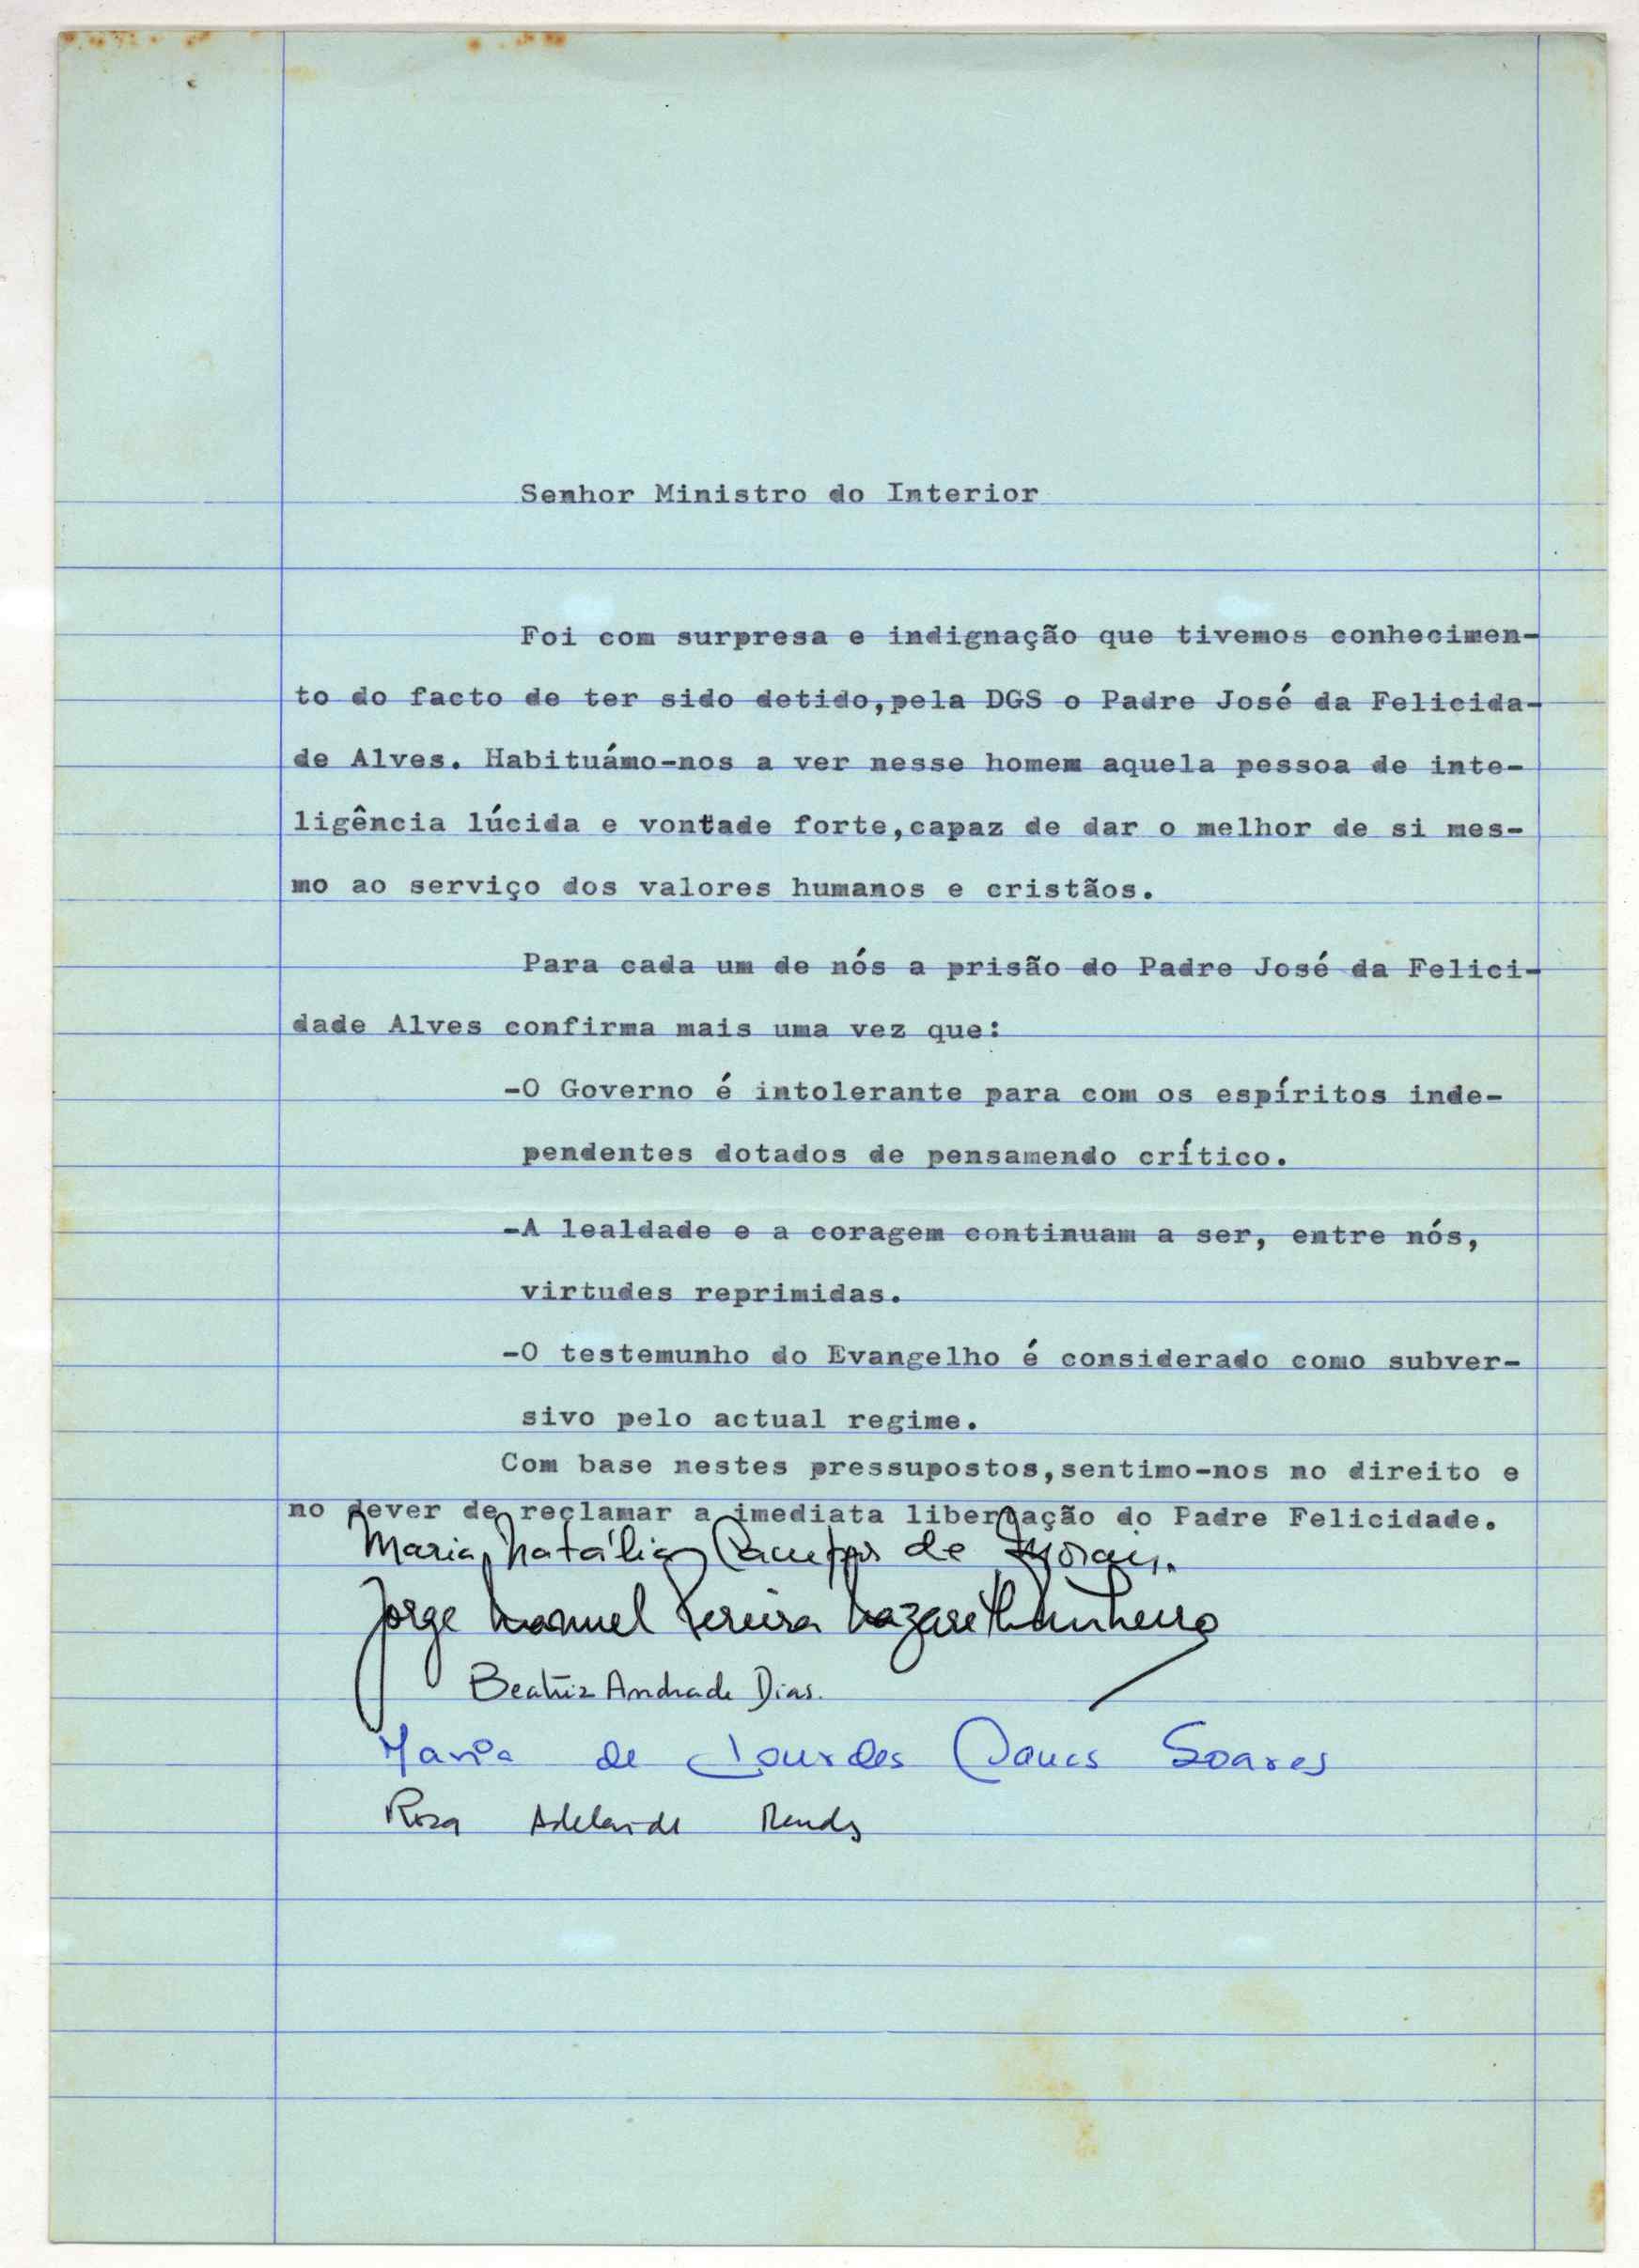 Senhor Ministro do Interior
Foi com surpresa e indignação que tivemos conhecimen-
to do facto de ter sido detido,pela DGS o Padre José da Felicida-
de Alves. Habituámo-nos a ver nesse homem aquela pessoa de inte-
ligência lúcida e vontade forte,capaz de dar o melhor de si mes-
mo ao serviço dos valores humanos e cristãos.
Para cada um de nós a prisão do Padre José da Felici-
dade Alves confirma mais uma vez que:
-O Governo é intolerante para com os espíritos inde-
pendentes dotados de pensamendo crítico.
-A lealdade e a coragem continuam a ser, entre nós,
virtudes reprimidas.
-O testemunho do Evangelho é considerado como subver-
sivo pelo actual regime.
Com base nestes pressupostos,sentimo-nos no direito e
no dever de reclamar a imediata libertação do Padre Felicidade.
Maria Natália Campos de Morais.
Jorge Manuel Pereira Nazareth
Beatriz Andrade Dias.
Maria de Lourdes Soares
Rosa Adelaide Mendes